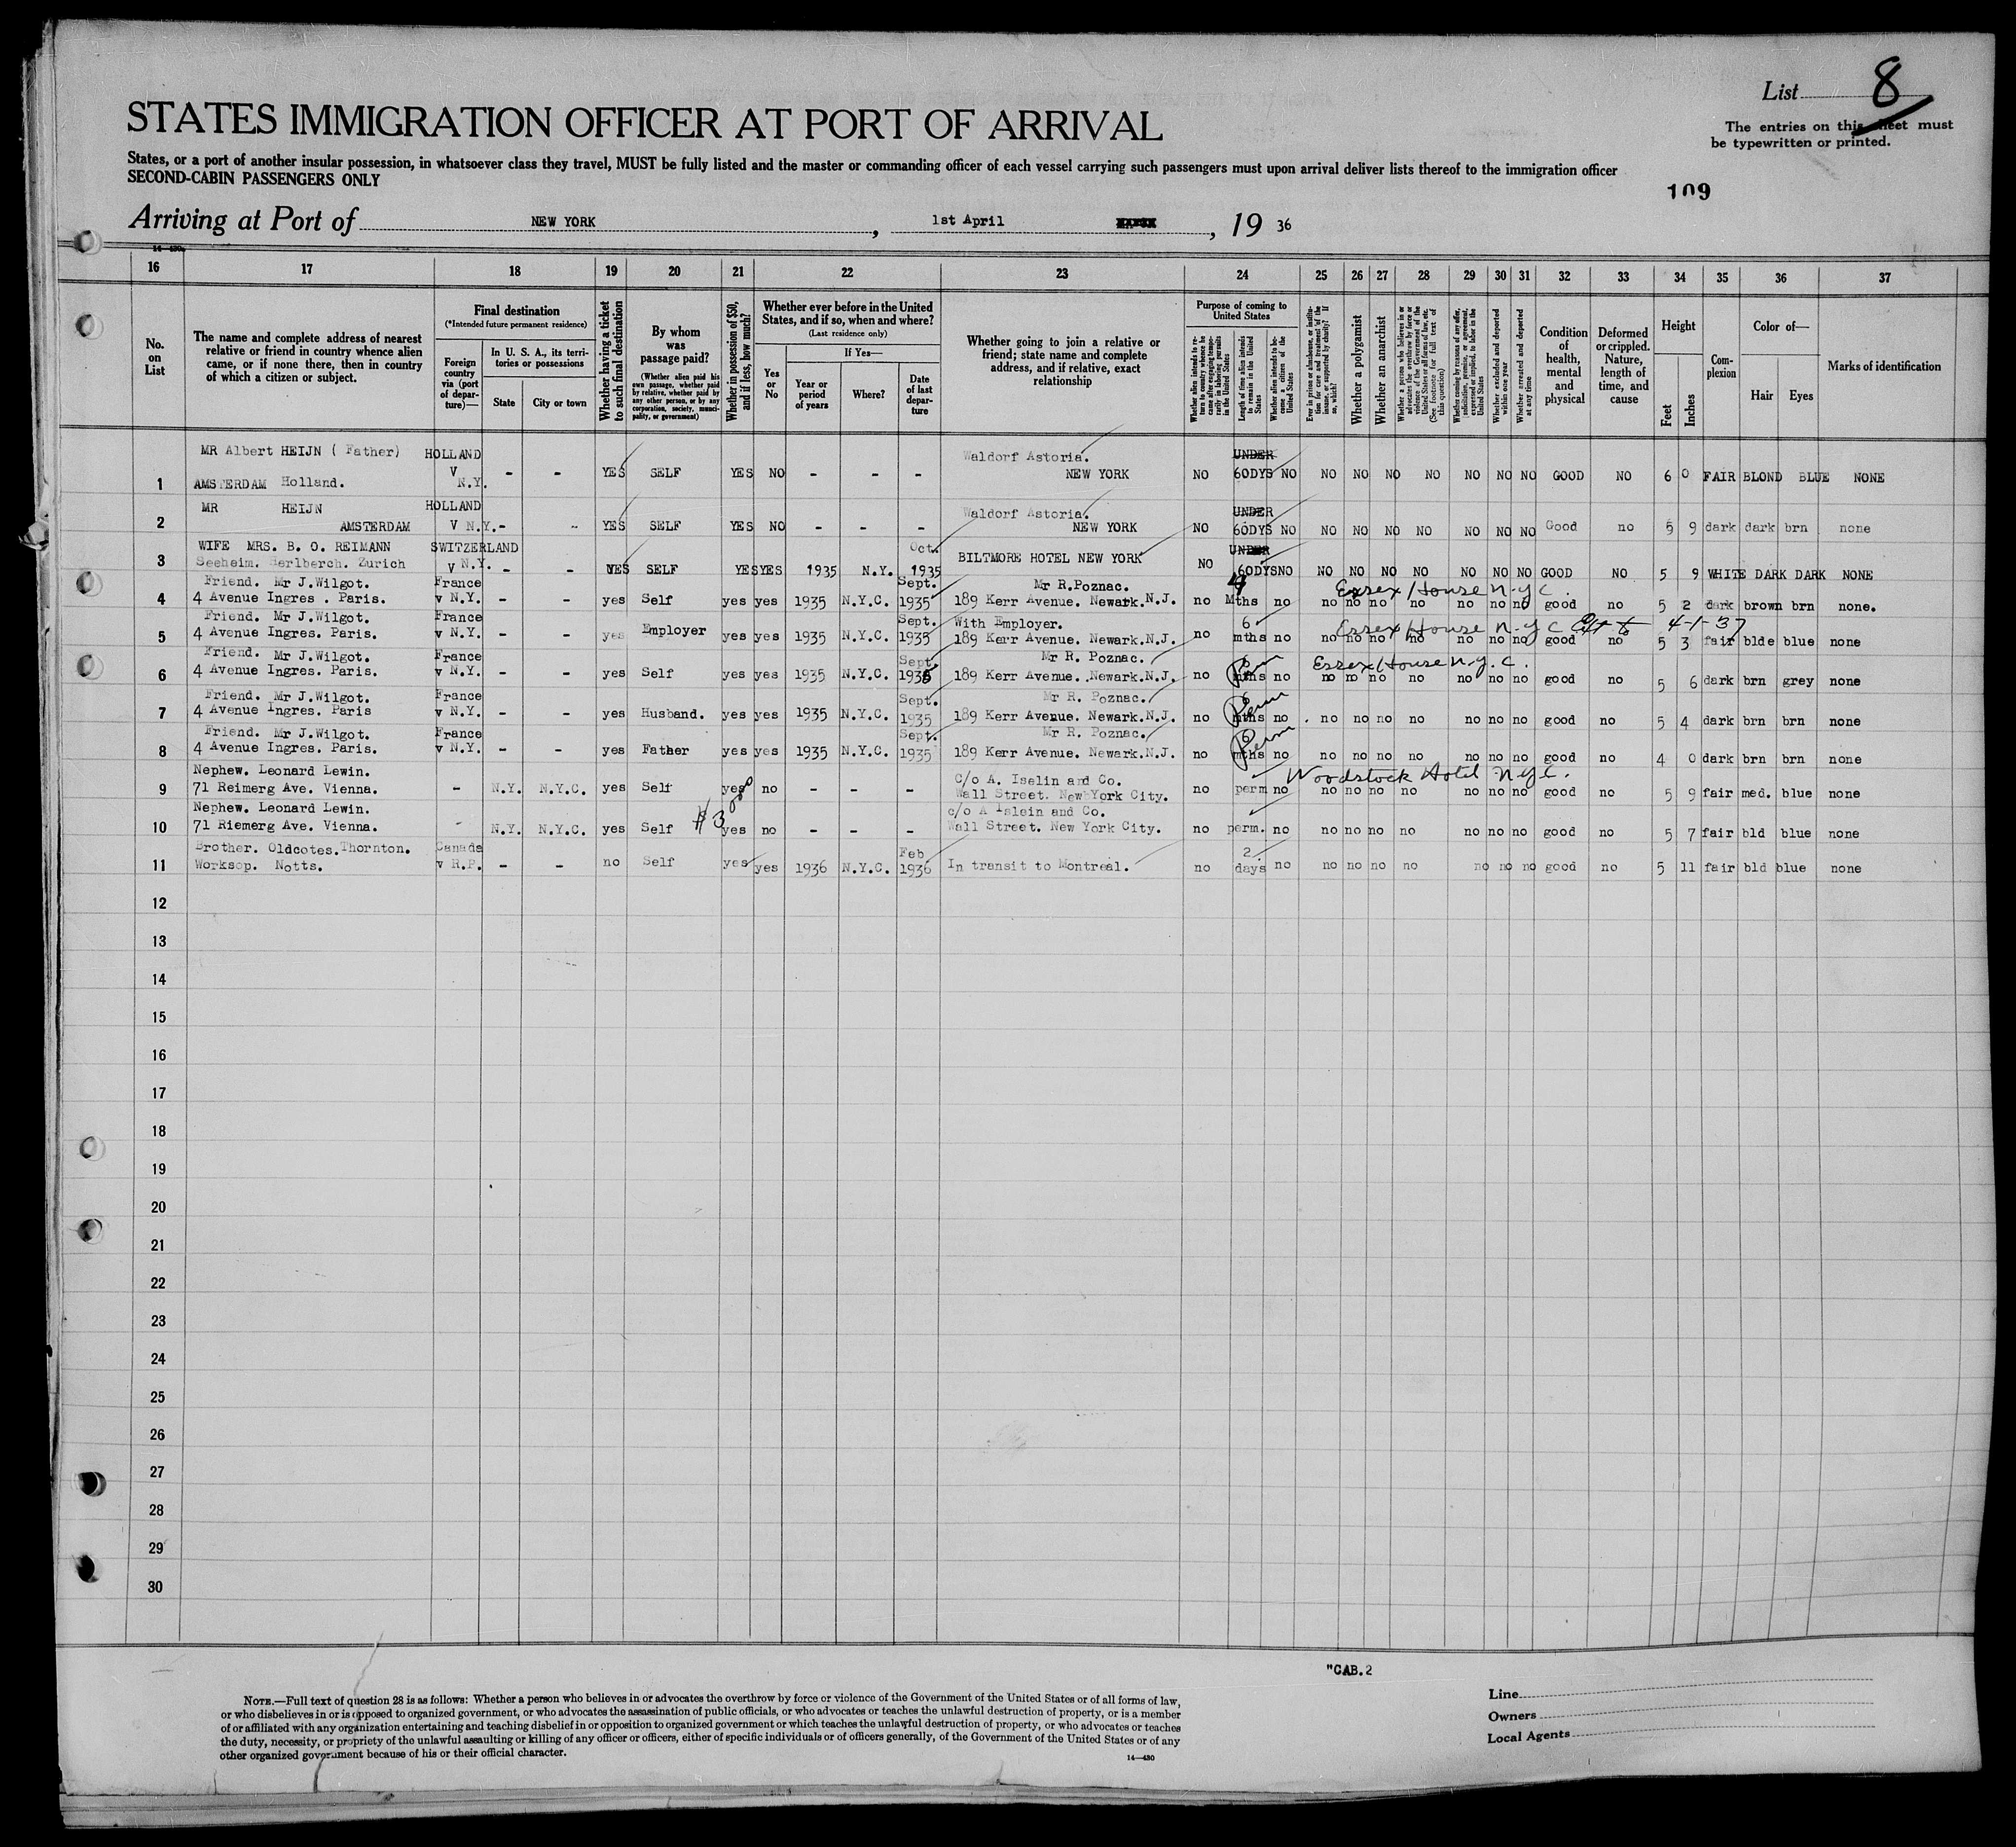 List 8
The entries on this sheet must
be typewritten or printed.
STATES IMMIGRATION OFFICER AT PORT OF ARRIVAL
States, or a port of another insular possession, in whatsoever class they travel, MUST be fully listed and the master or commanding officer of each vessel carrying such passengers must upon arrival deliver lists thereof to the immigration officer
SECOND-CABIN PASSENGERS ONLY
109
Arriving at Port of NEW YORK, 1st April, 19 36
16 17 18 19 20 21 22 23 24 25 26 27 28 29 30 31 32 33 34 35 36 37
No. on List
The name and complete address of nearest
relative or friend in country whence alien
came, or if none there, then in country
of which a citizen or subject.
Final destination
(*Intended future permanent residence)
Foreign country via (port of departure)—
In U. S. A., its territories or possessions
State
City or town
Whether having a ticket to such final destination
By whom was passage paid?
(Whether alien paid his own passage, whether paid by relative, whether paid by any other person, or by any corporation, society, municipality, or government)
Whether in possession of $50, and if less, how much?
Whether ever before in the United States, and if so, when and where?
(Last residence only)
Yes or No
If Yes—
Year or period of years
Where?
Date of last departure
Whether going to join a relative or
friend; state name and complete
address, and if relative, exact
relationship
Purpose of coming to United States
Whether alien intends to return to country whence he came after engaging temporarily in laboring pursuits in the United States
Length of time alien intends to remain in the United States
Whether alien intends to become a citizen of the United States
Ever in prison or almshouse, or institution for care and treatment of the insane, or supported by charity? If so, which?
Whether a polygamist
Whether an anarchist
Whether a person who believes in or advocates the overthrow by force or violence of the Government of the United States or all forms of law, etc. (See footnote for full text of this question)
Whether coming by reasons of any offer, solicitation, promise, or agreement, expressed or implied, to labor in the United States
Whether excluded and deported within one year
Whether arrested and deported at any time
Condition of health, mental and physical
Deformed or crippled. Nature, length of time, and cause
Height
Feet
Inches
Complexion
Color of—
Hair
Eyes
Marks of identification
MR Albert HEIJN ( Father) HOLLAND Waldorf Astoria. UNDER
1 AMSTERDAM Holland. V N.Y. - - YES SELF YES NO - - - NEW YORK NO 60DYS NO NO NO NO NO NO NO NO GOOD NO 6 0 FAIR BLOND BLUE NONE
MR HEIJN HOLLAND Waldorf Astoria. UNDER
2 AMSTERDAM V N.Y. - - YES SELF YES NO - - - NEW YORK NO 60DYS NO NO NO NO NO NO NO NO Good no 5 9 dark dark brn none
WIFE MRS. B. O. REIMANN SWITZERLAND Oct. UNDER
3 Seeheim. Herlberch. Zurich V N.Y. - - YES SELF YES YES 1935 N.Y. 1935 BILTMORE HOTEL NEW YORK NO 60DYS NO NO NO NO NO NO NO NO GOOD NO 5 9 WHITE DARK DARK NONE
Friend. Mr J.Wilgot. France Sept. Mr R.Poznac. 4 Essex House N.Y.C.
4 4 Avenue Ingres . Paris. v N.Y. - - yes Self yes yes 1935 N.Y.C. 1935 189 Kerr Avenue. Newark.N.J. no Mths no no no no no no no no good no 5 2 dark brown brn none.
Friend. Mr J.Wilgot. France Sept. With Employer. 6 Essex House N.Y.C. 4-1-37
5 4 Avenue Ingres. Paris. v N.Y. - - yes Employer yes yes 1935 N.Y.C. 1935 189 Kerr Avenue. Newark.N.J. no mths no no no no no no no no good no 5 3 fair blde blue none
Friend. Mr J.Wilgot. France Sept. Mr R. Poznac. Perm Essex House N.Y.C.
6 4 Avenue Ingres. Paris. v N.Y. - - yes Self yes yes 1935 N.Y.C. 1935 189 Kerr Avenue. Newark.N.J. no mths no no no no no no no no good no 5 6 dark brn grey none
Friend. Mr J.Wilgot. France Sept. Mr R. Poznac. 6 Perm
7 4 Avenue Ingres. Paris v N.Y. - - yes Husband. yes yes 1935 N.Y.C. 1935 189 Kerr Avenue. Newark.N.J. no mths no . no no no no no no no good no 5 4 dark brn brn none
Friend. Mr J.Wilgot. France Sept. Mr R. Poznac. 6 Perm
8 4 Avenue Ingres. Paris. v N.Y. - - yes Father yes yes 1935 N.Y.C. 1935 189 Kerr Avenue. Newark.N.J. no mths no no no no no no no no good no 4 0 dark brn brn none
Nephew. Leonard Lewin. C/o A. Iselin and Co. Woodstock Hotel N.Y.C.
9 71 Reimerg Ave. Vienna. - N.Y. N.Y.C. yes Self yes no - - - Wall Street. New York City. no perm no no no no no no no no good no 5 9 fair med. blue none
Nephew. Leonard Lewin. $300 c/o A Islein and Co.
10 71 Riemerg Ave. Vienna. N.Y. N.Y.C. yes Self yes no - - - Wall Street. New York City. no perm. no no no no no no no no good no 5 7 fair bld blue none
Brother. Oldcotes.Thornton. Canada Feb 2
11 Worksop. Notts. v R.P. - - no Self yes yes 1936 N.Y.C. 1936 In transit to Montreal. no days no no no no no no no no good no 5 11 fair bld blue none
12
13
14
15
16
17
18
19
20
21
22
23
24
25
26
27
28
29
30
"CAB.2
NOTE.—Full text of question 28 is as follows: Whether a person who believes in or advocates the overthrow by force or violence of the Government of the United States or of all forms of law,
or who disbelieves in or is opposed to organized government, or who advocates the assassination of public officials, or who advocates or teaches the unlawful destruction of property, or is a member
of or affiliated with any organization entertaining and teaching disbelief in or opposition to organized government or which teaches the unlawful destruction of property, or who advocates or teaches
the duty, necessity, or propriety of the unlawful assaulting or killing of any officer or officers, either of specific individuals or of officers generally, of the Government of the United States or of any
other organized government because of his or their official character.
14—430
Line
Owners
Local Agents